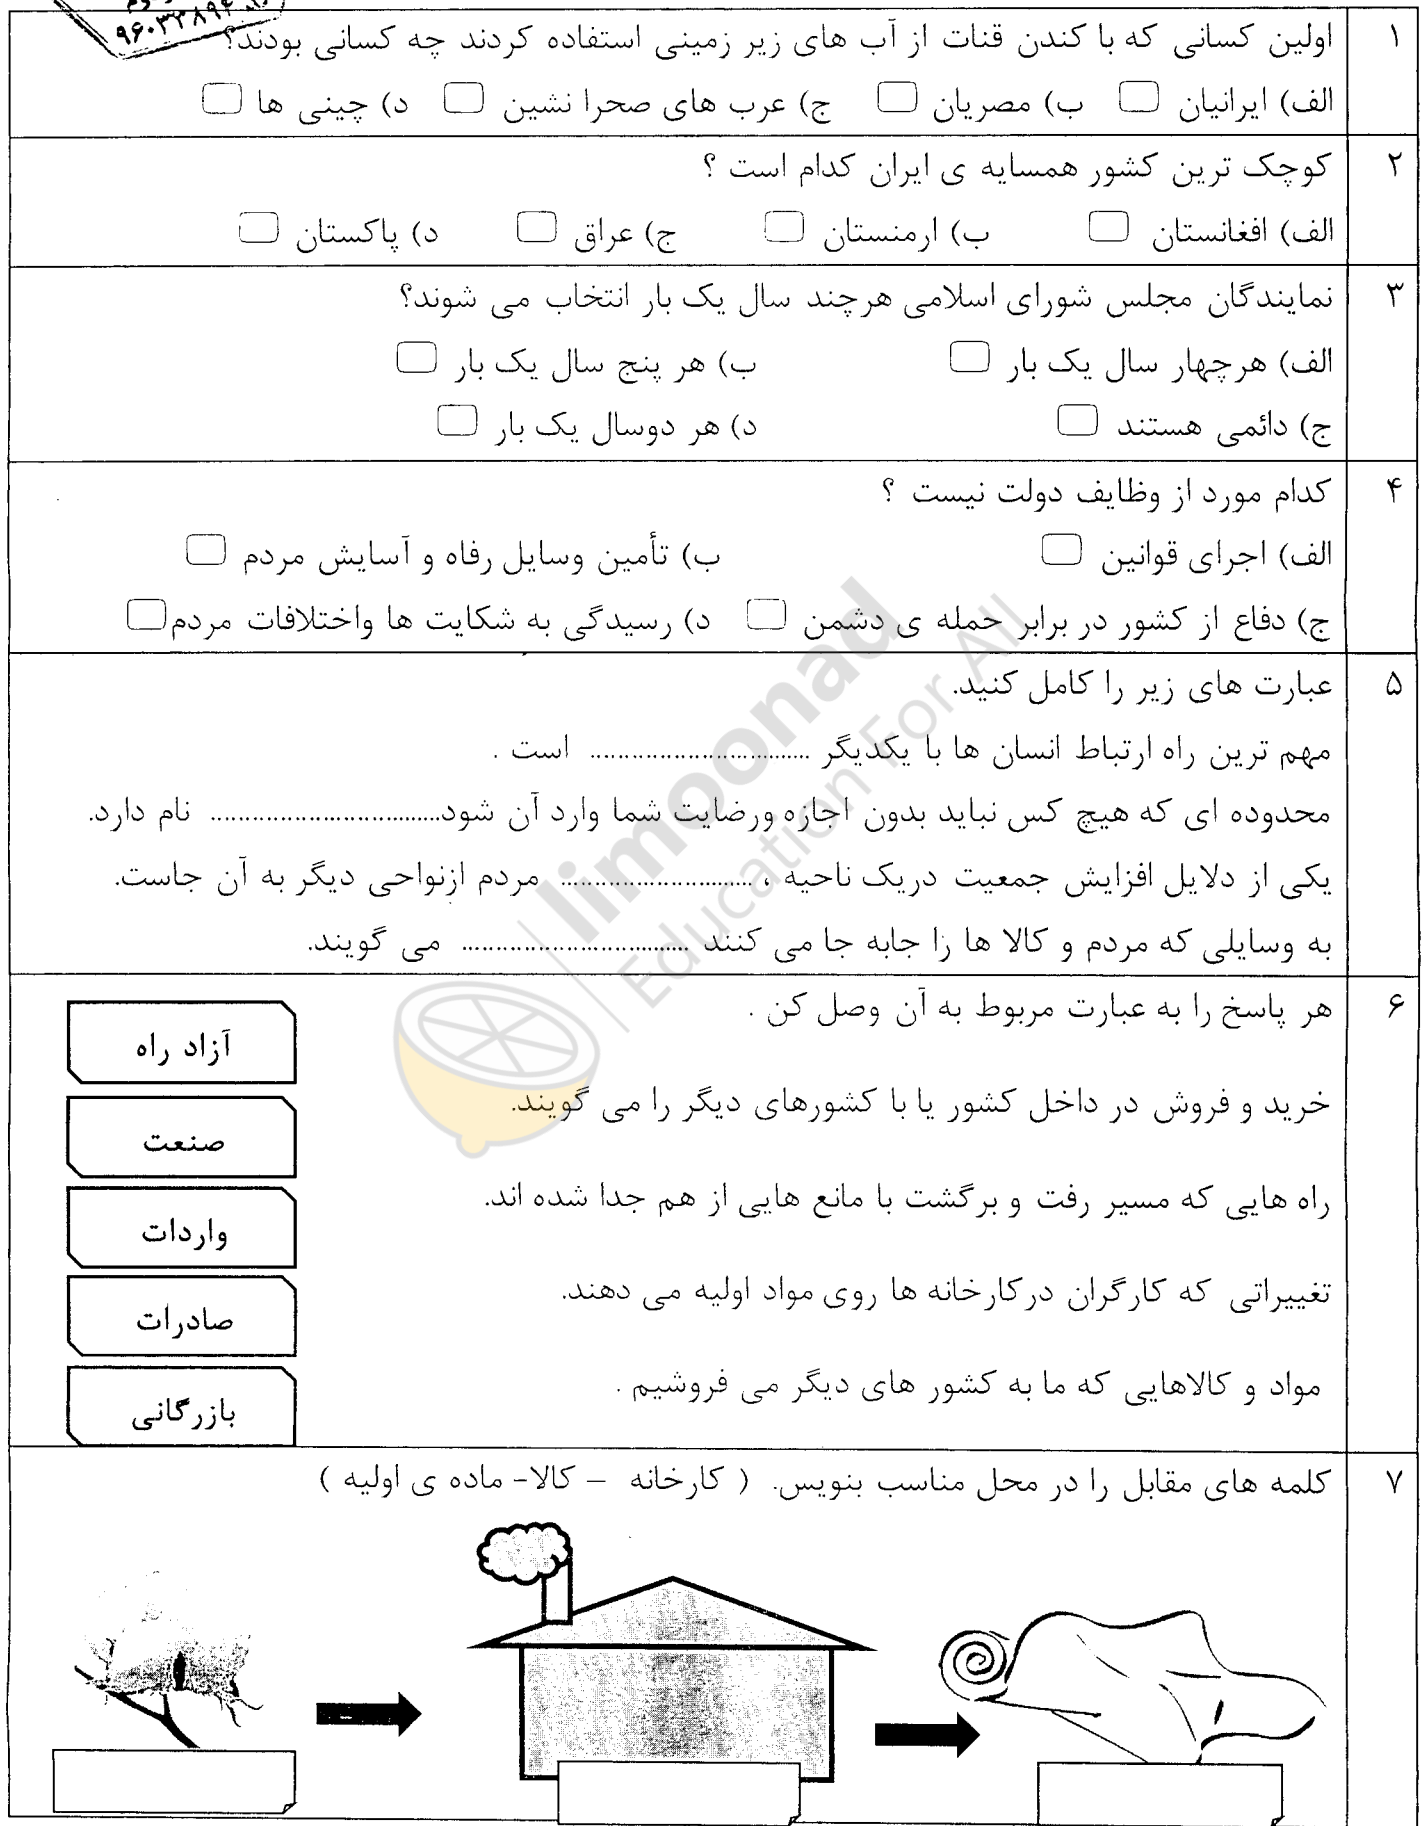 ۹۶۰۳۳۸۹۴
۱ اولین کسانی که با کندن قنات از آب های زیر زمینی استفاده کردند چه کسانی بودند؟
الف) ایرانیان ب) مصریان ج) عرب های صحرا نشین د) چینی ها
۲ کوچک ترین کشور همسایه ی ایران کدام است ؟
الف) افغانستان ب) ارمنستان ج) عراق د) پاکستان
۳ نمایندگان مجلس شورای اسلامی هرچند سال یک بار انتخاب می شوند؟
الف) هرچهار سال یک بار ب) هر پنج سال یک بار
ج) دائمی هستند د) هر دوسال یک بار
۴ کدام مورد از وظایف دولت نیست ؟
الف) اجرای قوانین ب) تأمین وسایل رفاه و آسایش مردم
ج) دفاع از کشور در برابر حمله ی دشمن د) رسیدگی به شکایت ها واختلافات مردم
۵ عبارت های زیر را کامل کنید.
مهم ترین راه ارتباط انسان ها با یکدیگر ................................ است .
محدوده ای که هیچ کس نباید بدون اجازه ورضایت شما وارد آن شود................................. نام دارد.
یکی از دلایل افزایش جمعیت دریک ناحیه ، ............................ مردم ازنواحی دیگر به آن جاست.
به وسایلی که مردم و کالا ها را جابه جا می کنند ................................. می گویند.
۶ هر پاسخ را به عبارت مربوط به آن وصل کن .
آزاد راه
خرید و فروش در داخل کشور یا با کشورهای دیگر را می گویند.
صنعت
راه هایی که مسیر رفت و برگشت با مانع هایی از هم جدا شده اند.
واردات
تغییراتی که کارگران درکارخانه ها روی مواد اولیه می دهند.
صادرات
مواد و کالاهایی که ما به کشور های دیگر می فروشیم .
بازرگانی
۷ کلمه های مقابل را در محل مناسب بنویس. ( کارخانه – کالا- ماده ی اولیه )
limoonad
Education For All